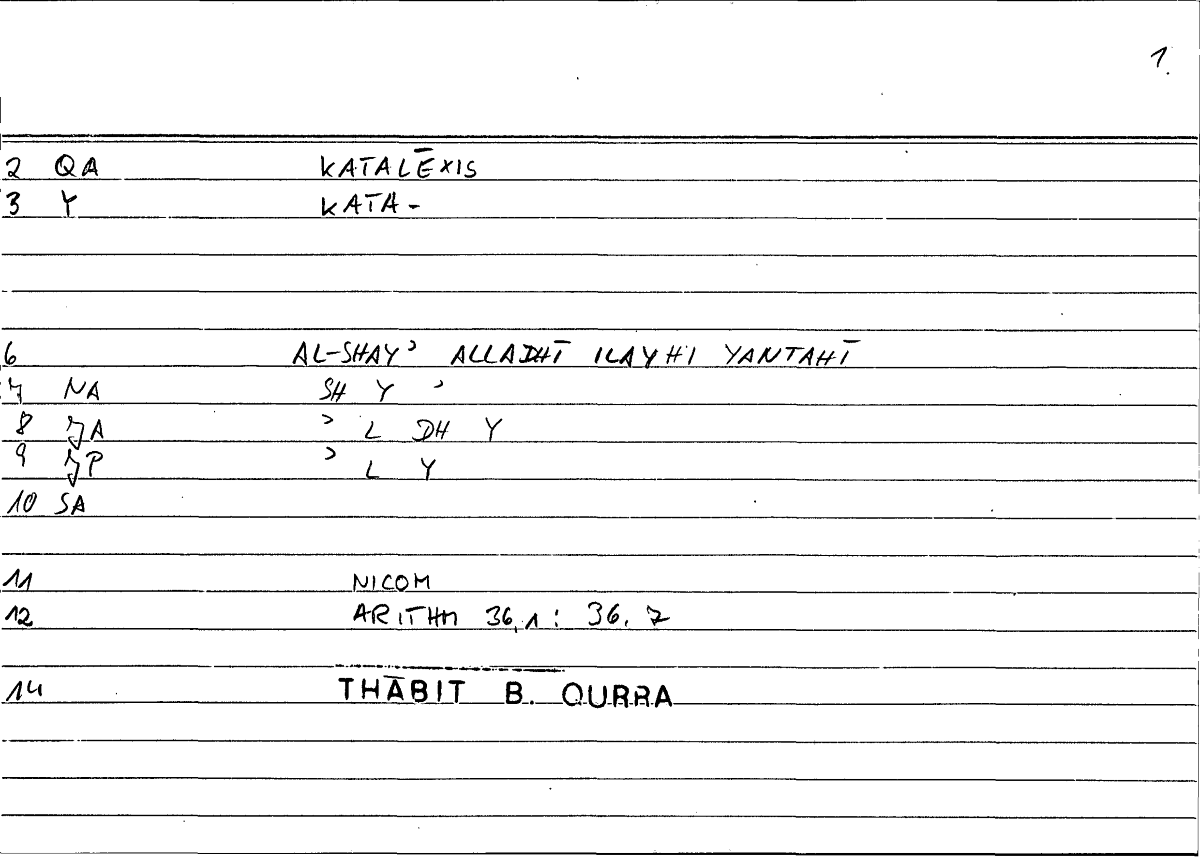 1.
2 QA KATALĒXIS
3 Y KATA-
6 AL-SHAYʾ ALLADHĪ ILAYHI YANTAHĪ
7 NA SH Y ʾ
8 JA ʾ L DH Y
9 JP ʾ L Y
10 SA
11 NICOM
12 ARITHM 36,1 : 36.7
14 THĀBIT B. QURRA